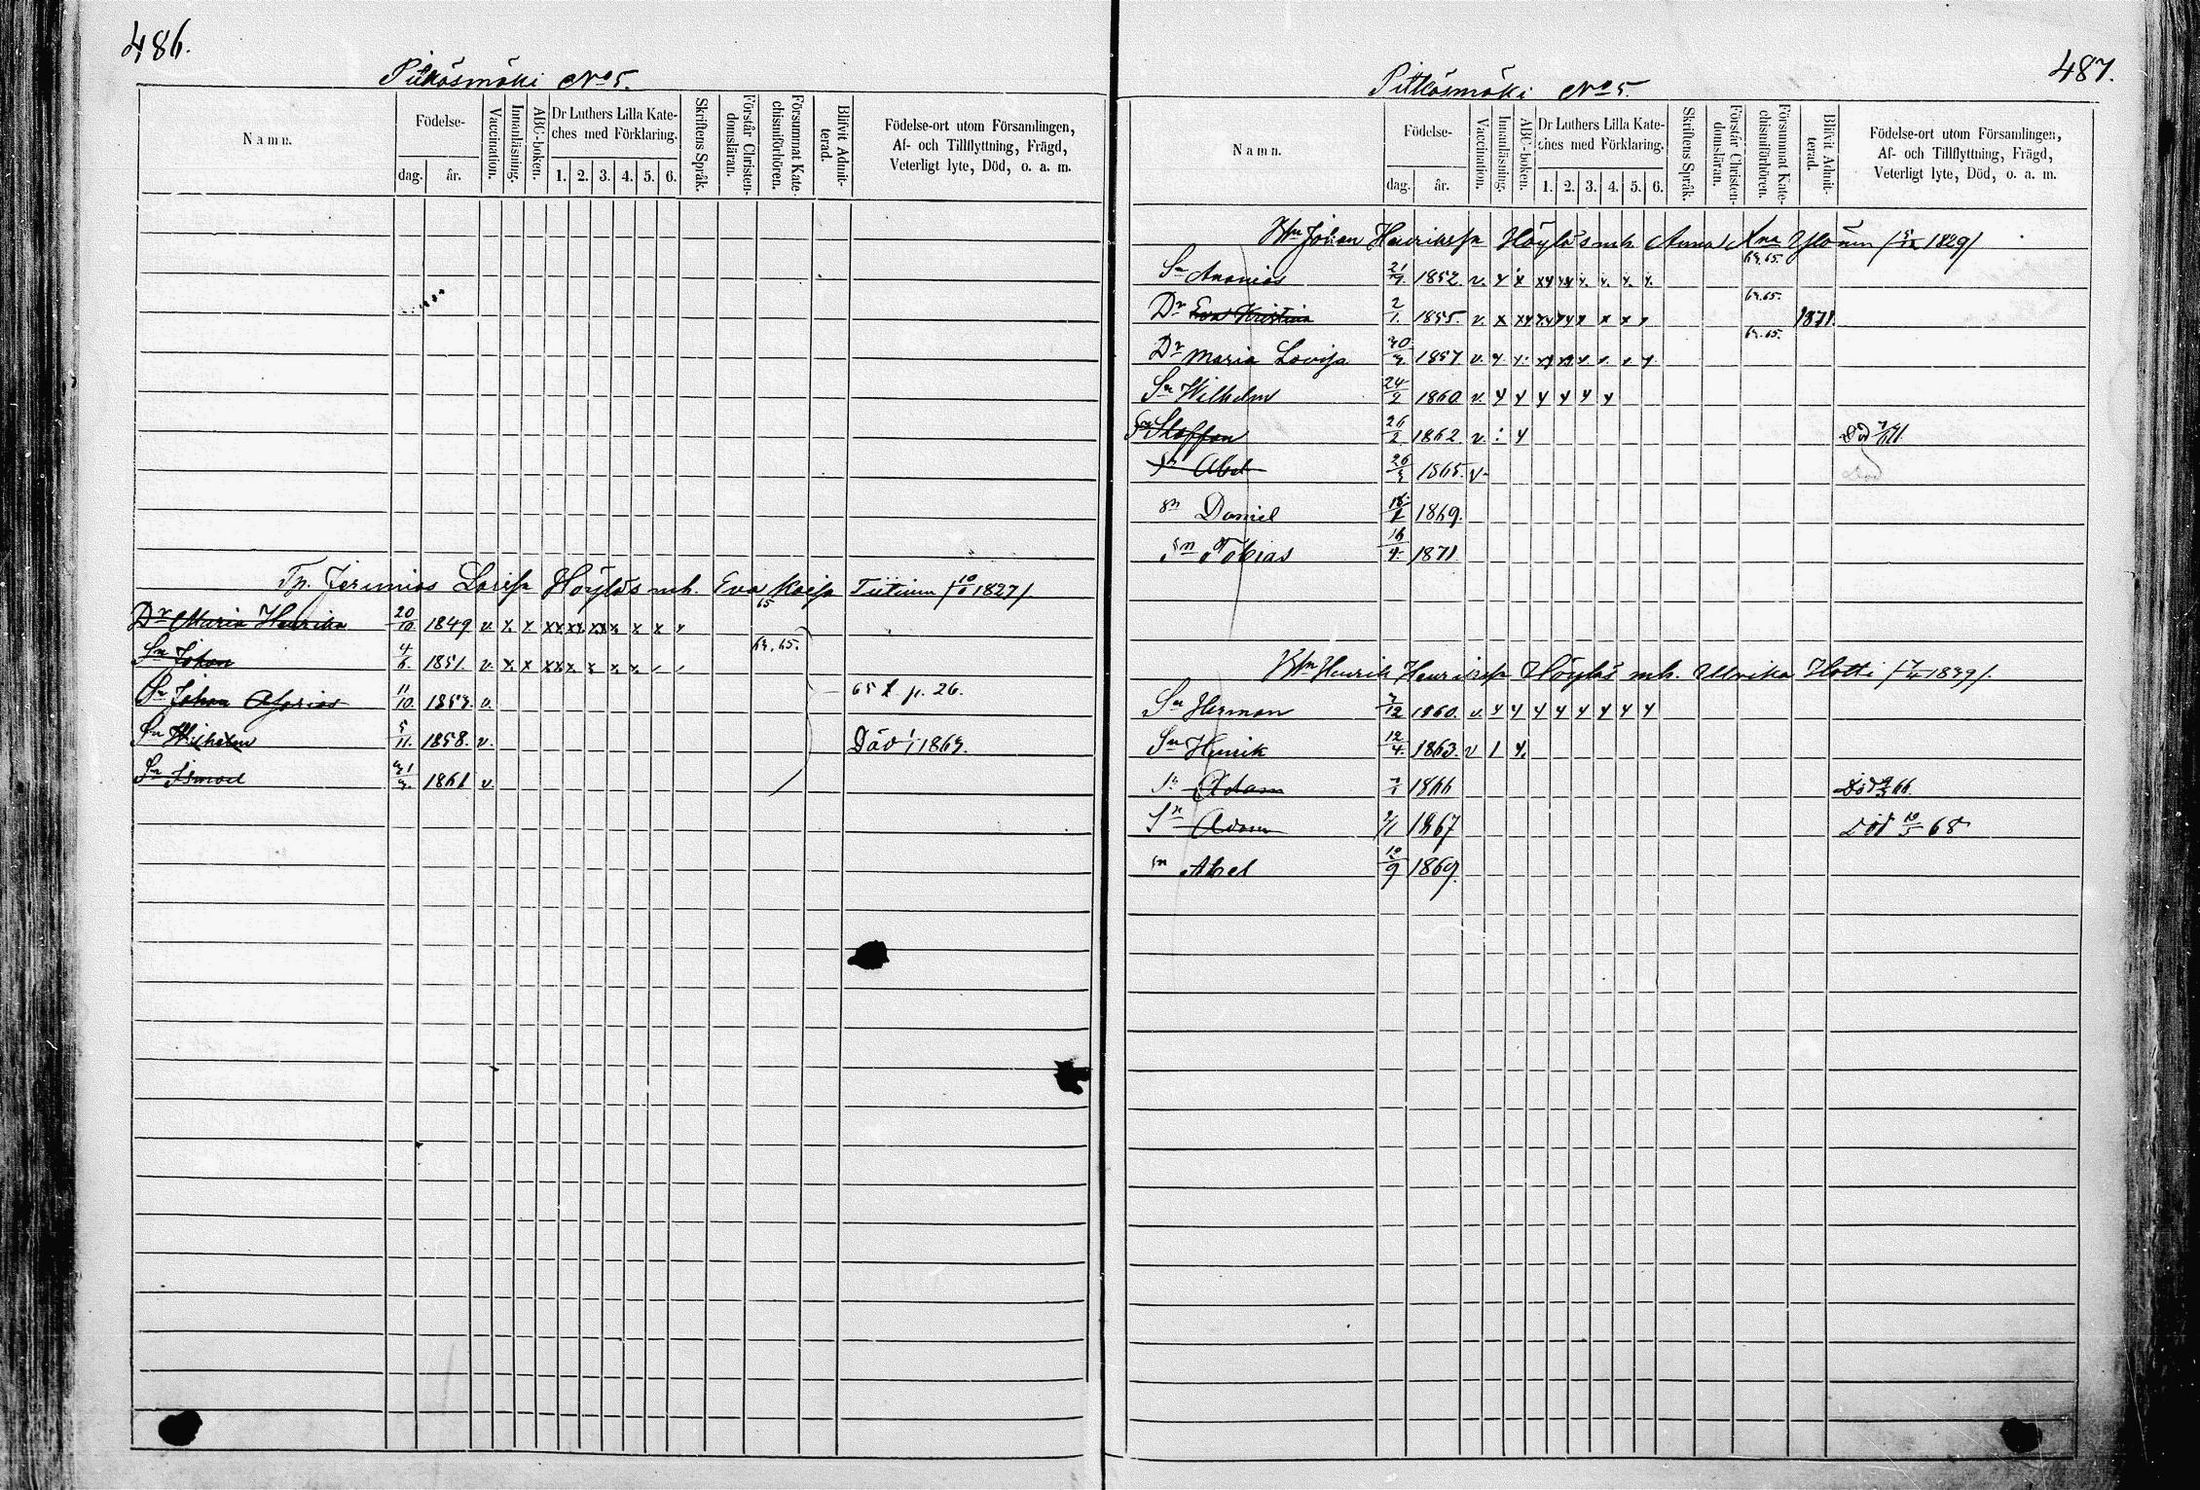 486.
Pitkäsmäki No 5.
Namn.
Födelse-
dag.
år.
Vaccination.
Innanläsning.
ABC-boken.
Dr Luthers Lilla Kate-
ches med Förklaring.
1. 2. 3. 4. 5. 6.
Skriftens Språk.
Förstår Christen-
domsläran.
Försummat Kate-
chismiförhören.
Blifvit Admit-
terad.
Födelse-ort utom Församlingen,
Af- och Tillflyttning, Frägd,
Veterligt lyte, Död, o. a. m.
Jeremias Höyläs mh. Eva Kaisa 1827
65
Dr Maria Henrika 20/10 1849 v. x x
64. 65.
Sn Johan 4/6. 1851. v. x x
Sn Johan 11/10. 1853. v. 65 p. 26.
Sn Wilhelm 5/11. 1858. v. Död 1/1 1863.
Sn Ismael 1861 v.
487.
Pitkäsmäki No 5.
Namn.
Födelse-
dag.
år.
Vaccination.
Innanläsning.
ABC-boken.
Dr Luthers Lilla Kate-
ches med Förklaring.
1. 2. 3. 4. 5. 6.
Skriftens Språk.
Förstår Christen-
domsläran.
Försummat Kate-
chismiförhören.
Blifvit Admit-
terad.
Födelse-ort utom Församlingen,
Af- och Tillflyttning, Frägd,
Veterligt lyte, Död, o. a. m.
Johan Henrikss Höyläs mh. Anna 1829
64. 65.
Sn Ananias 1852. v. x x
64. 65.
Dr Eva Kristina 2/1. 1855. v. x x 1871.
64. 65.
Dr Maria Lovisa 1857 v. x x
Sn Wilhelm 24/2 1860 v. x x x x x x
Sn Staffan 26/2 1862 v.
Sn Abel 1865. v.
Sn Daniel 1869.
Sn Tobias 16/4. 1871
Henrik Henrikss Höyläs mh. Ulrika Hotti 1839
Sn Herman 1860. v. x x x x x x x x
Sn Henrik 12/4. 1863. v
Sn Adam 1866 Död 66.
Sn Adam 1867 Död 68
Sn Abel 10/9 1869.